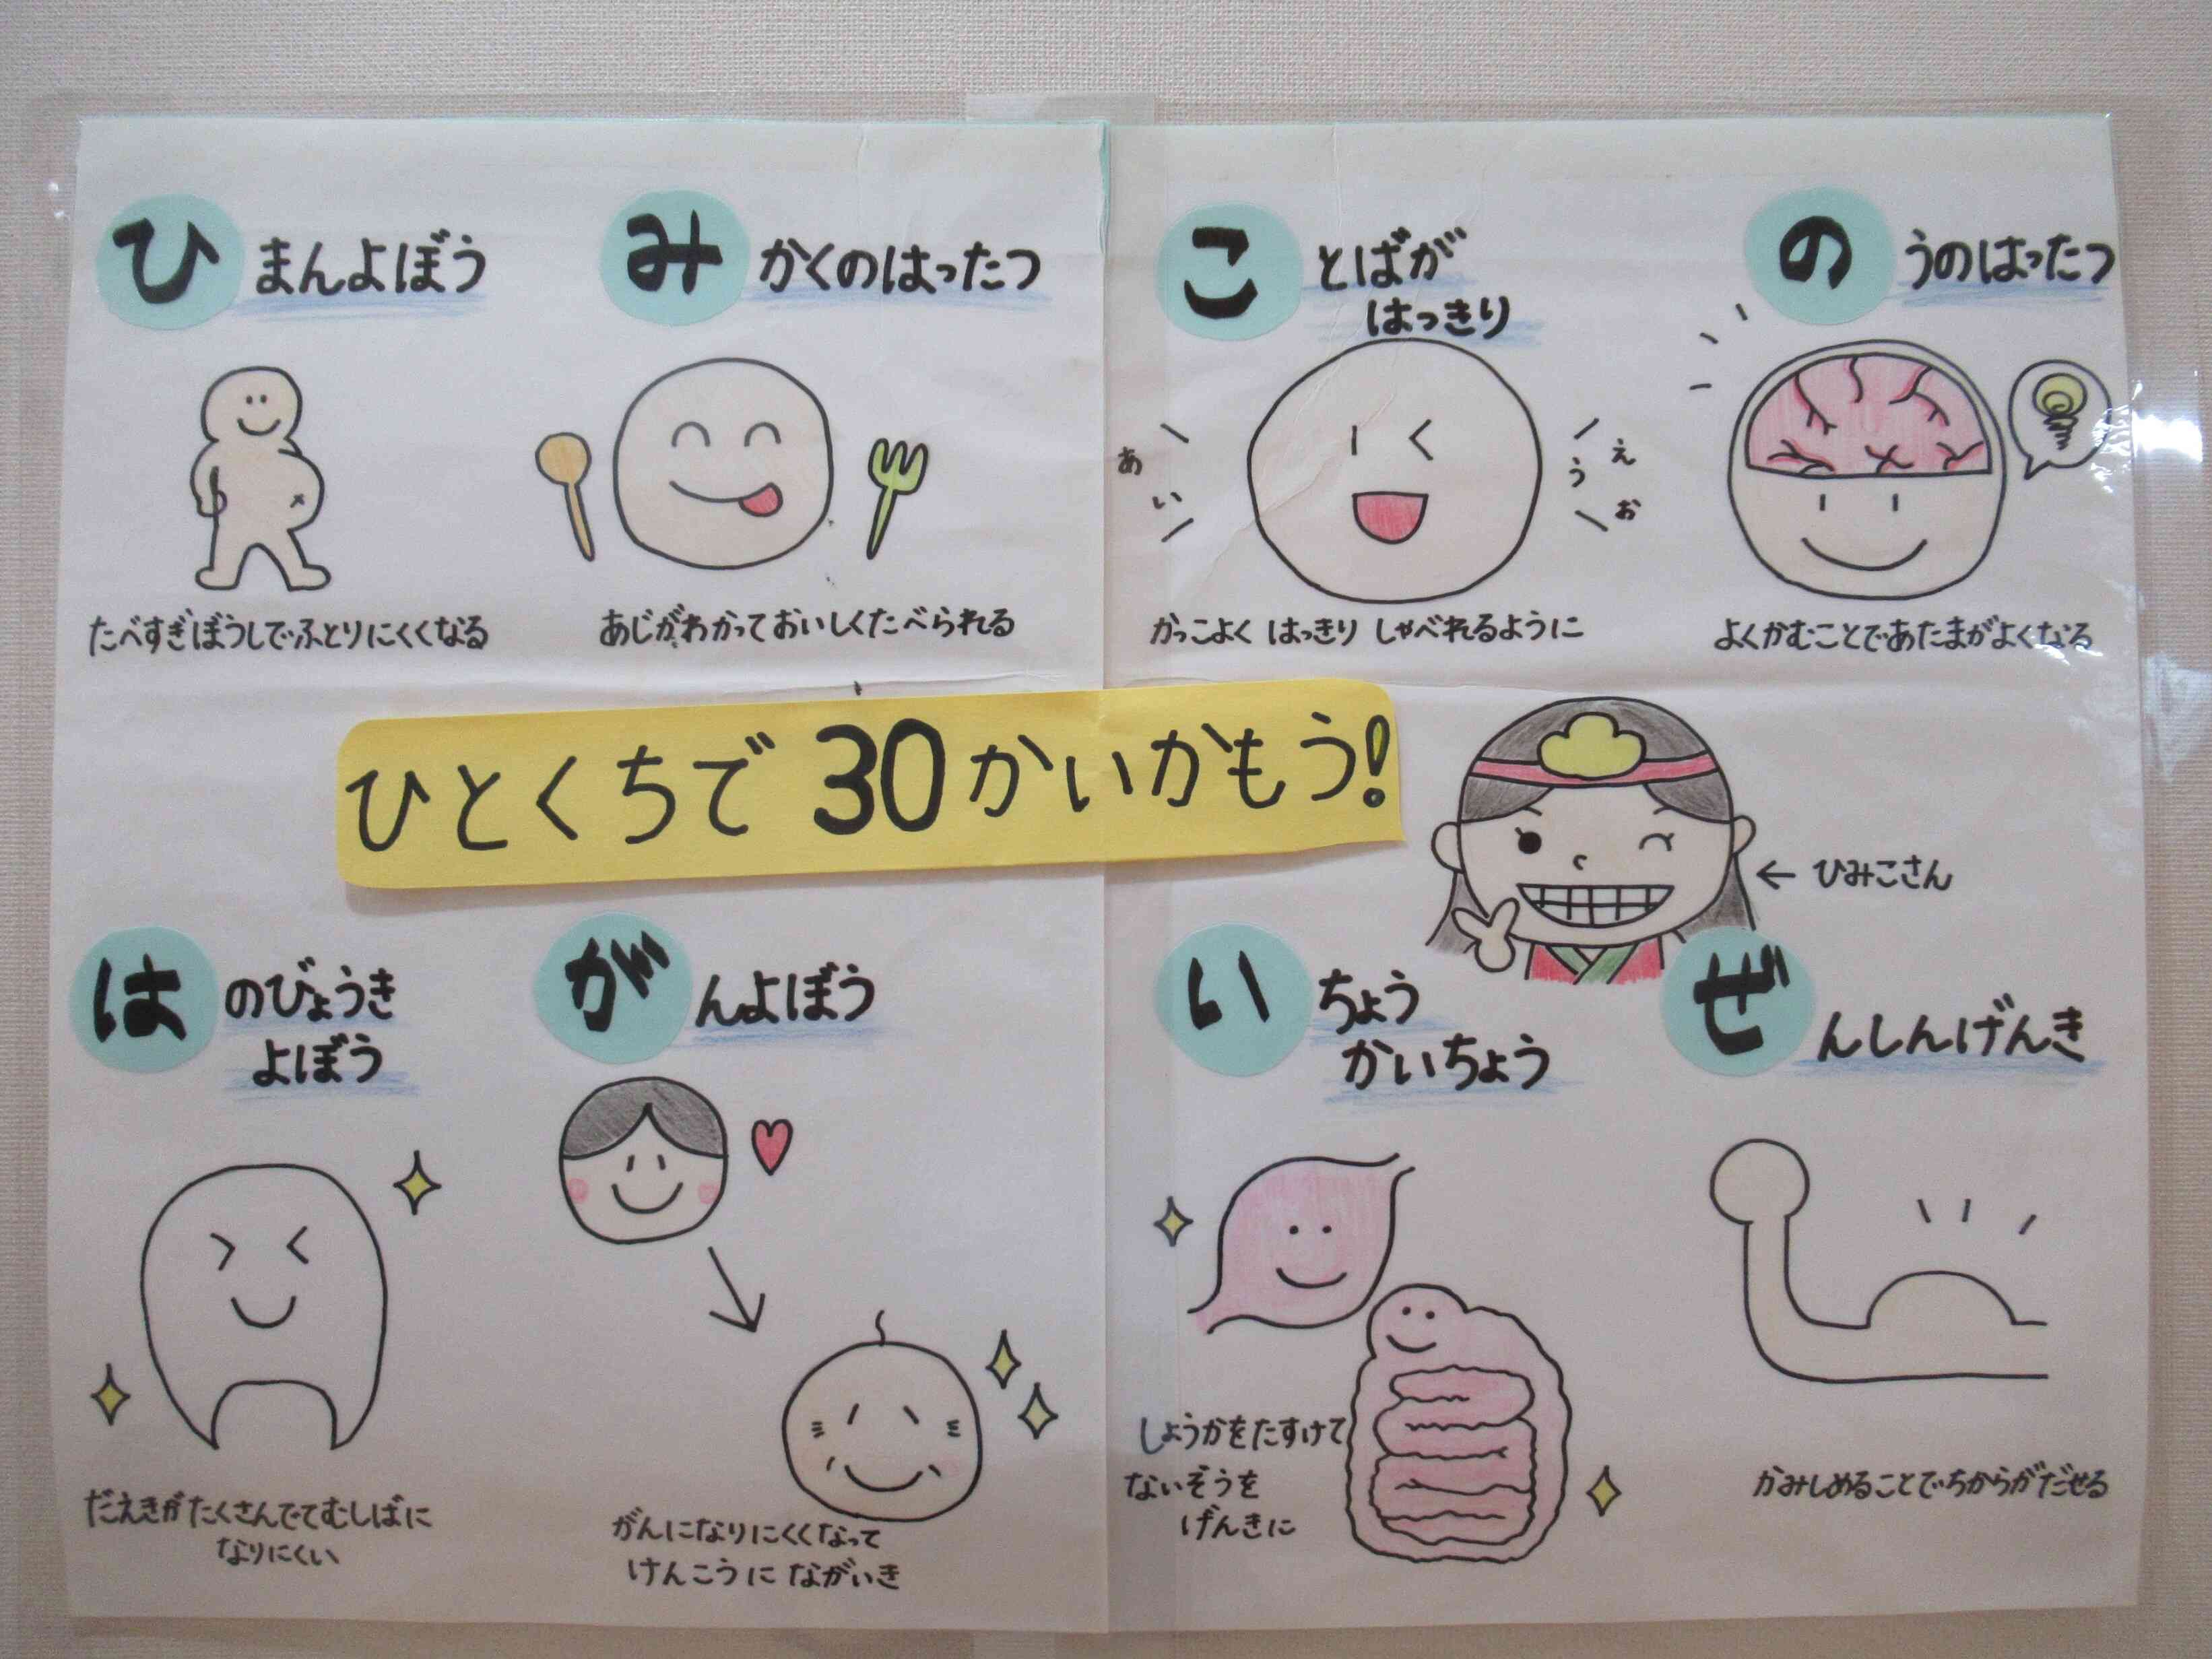 ひまんよぼう
たべすぎぼうしでふとりにくくなる
みかくのはったつ
あじがわかっておいしくたべられる
ことばが
はっきり
あ
い
う
え
お
かっこよく はっきり しゃべれるように
のうのはったつ
よくかむことであたまがよくなる
ひとくちで30かいかもう!
← ひみこさん
はのびょうき
よぼう
だえきがたくさんでてむしばに
なりにくい
がんよぼう
がんになりにくくなって
けんこうに ながいき
いちょう
かいちょう
しょうかをたすけて
ないぞうを
げんきに
ぜんしんげんき
かみしめることでちからがだせる